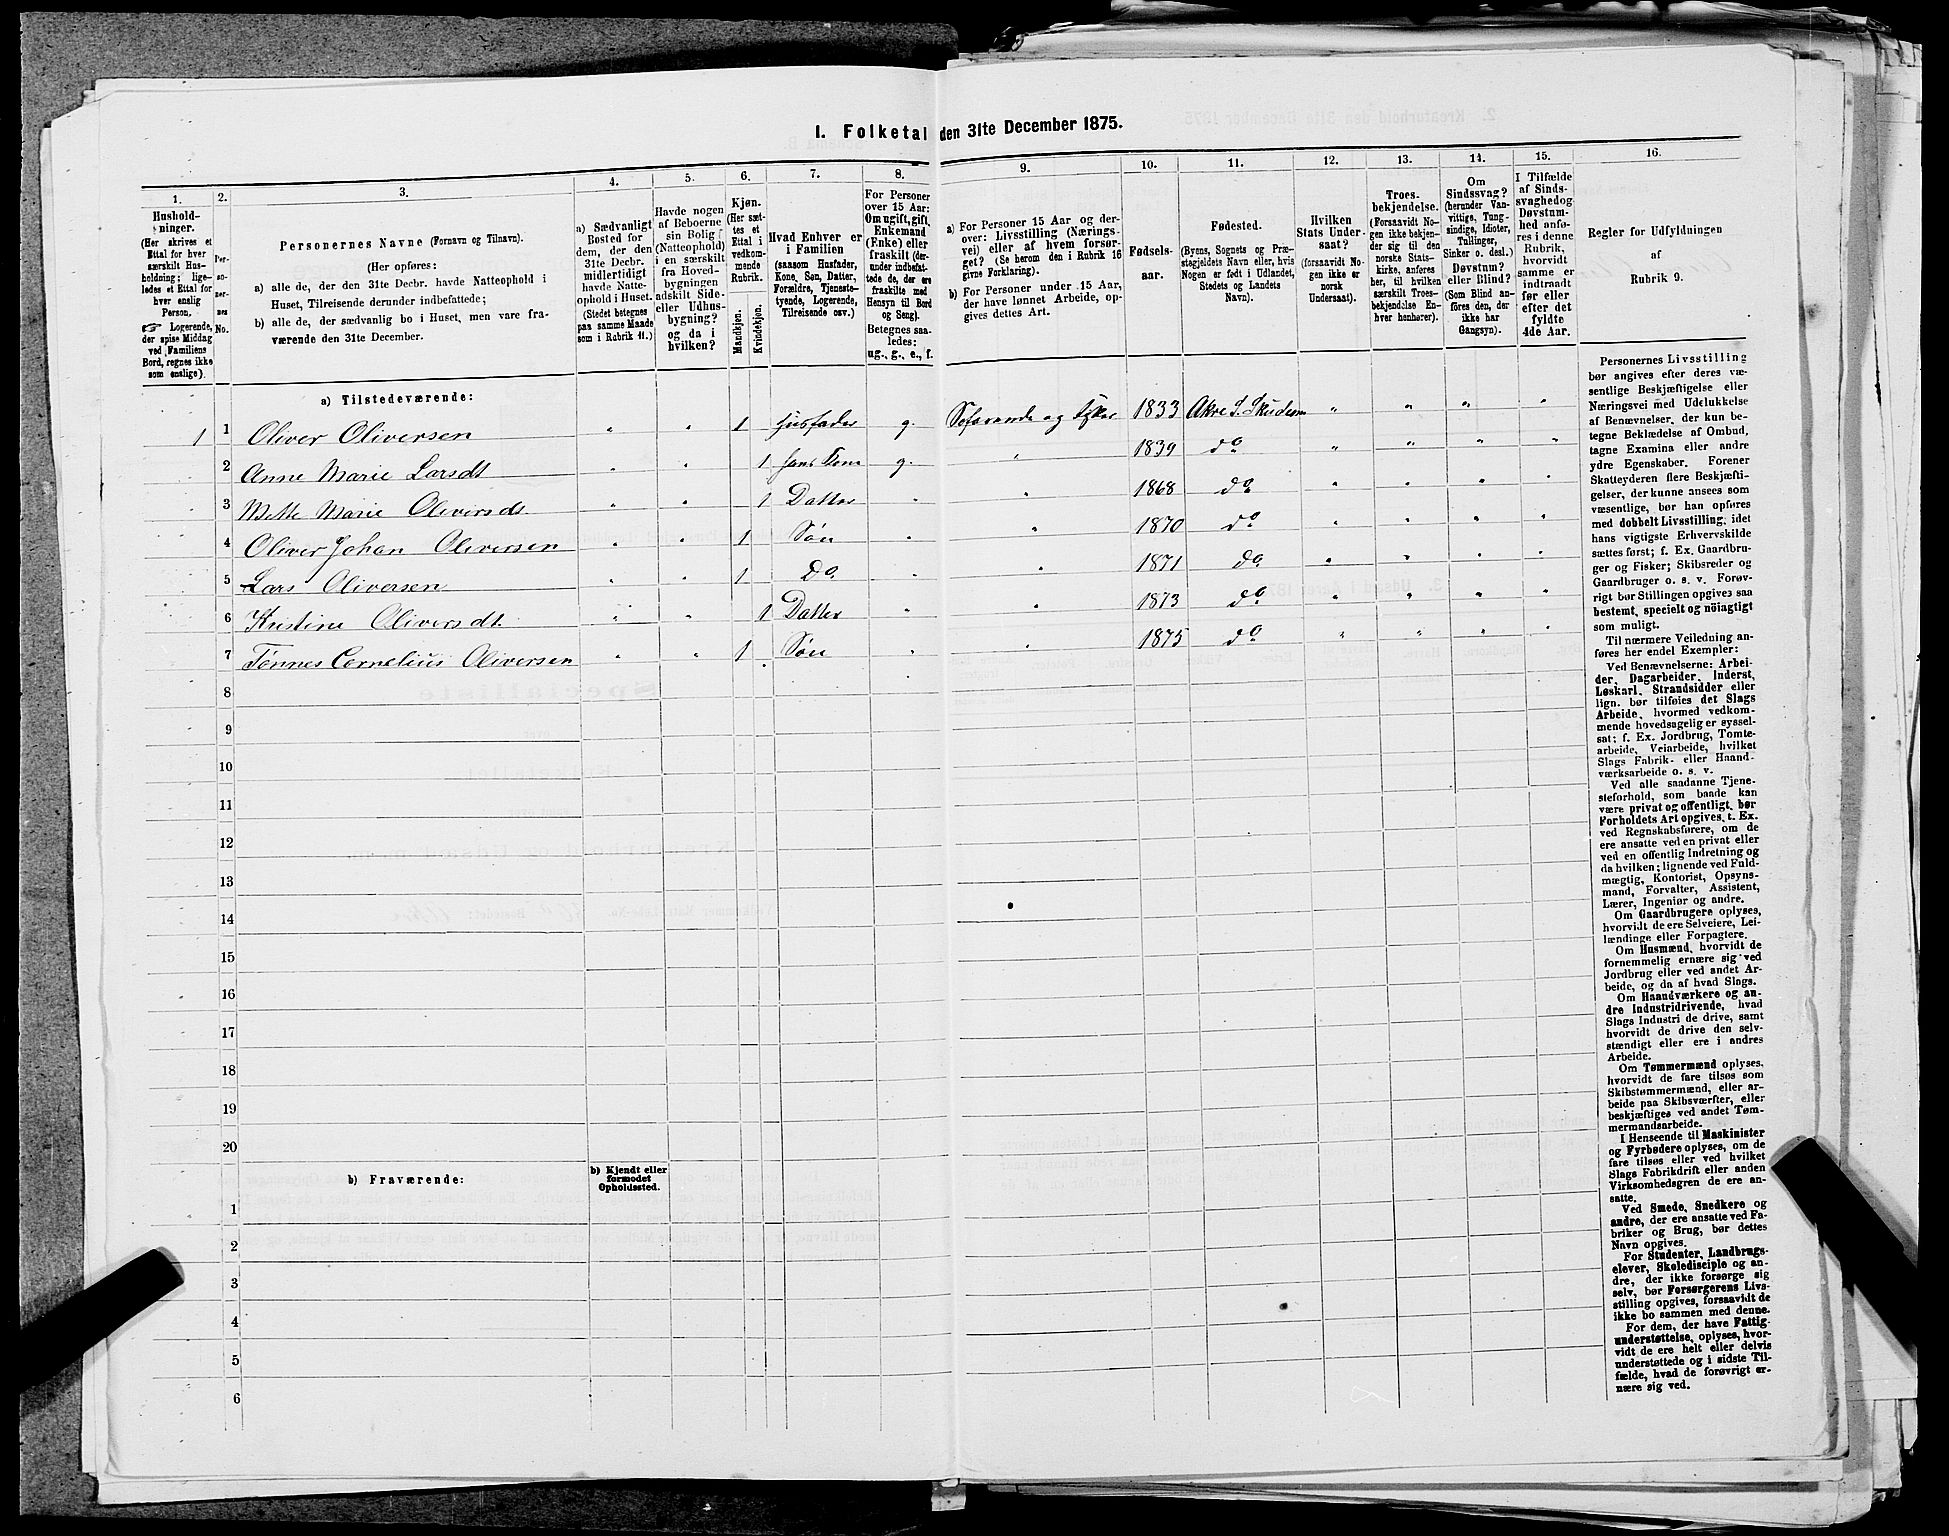 I. Folketal den 31te December 1875.
1. 2. 3. 4. 5. 6. 7. 8. 9. 10. 11. 12. 13. 14. 15. 16.
Hushold-
ninger.
(Her skrives et
Ettal for hver
særskilt Hus-
holdning; lige-
ledes et Ettal for
hver enslig
Person.
☞ Logerende,
der spise Middag
ved Familiens
Bord, regnes ikke
som enslige).
Per-
so-
ner-
nes
No.
Personernes Navne (Fornavn og Tilnavn).
(Her opføres:
a) alle de, der den 31te Decbr. havde Natteophold i
Huset, Tilreisende derunder indbefattede;
b) alle de, der sædvanlig bo i Huset, men vare fra-
værende den 31te December.
a) Sædvanligt
Bosted for
dem, der den
31te Decbr.
midlertidigt
havde Natte-
ophold i Huset.
(Stedet betegnes
paa samme Maade
som i Rubrik 11.)
Havde nogen
af Beboerne
sin Bolig
(Natteophold)
i en særskilt
fra Hoved-
bygningen
adskilt Side-
eller Udhus-
bygning?
og da i
hvilken?
Kjøn.
(Her sæt-
tes et
Ettal i
vedkom-
mende
Rubrik.
Mandkjøn.
Kvindekjøn.
Hvad Enhver er
i Familien
(saasom Husfader,
Kone, Søn, Datter,
Forældre, Tjeneste-
tyende, Logerende,
Tilreisende osv.)
For Personer
over 15 Aar:
Om ugift, gift,
Enkemand
(Enke) eller
fraskilt (der-
under indbefat-
tede de, der ere
fraskilte med
Hensyn til Bord
og Seng).
Betegnes saa-
ledes:
ug., g., e., f.
a) For Personer 15 Aar og der-
over: Livsstilling (Nærings-
vei) eller af hvem forsør-
get? (Se herom den i Rubrik 16
givne Forklaring).
b) For Personer under 15 Aar,
der have lønnet Arbeide, op-
gives dettes Art.
Fødsels-
aar.
Fødested.
(Byens, Sognets og Præ-
stegjeldets Navn eller, hvis
Nogen er født i Udlandet,
Stedets og Landets
Navn).
Hvilken
Stats Under-
saat?
(forsaavidt No-
gen ikke er
norsk
Undersaat).
Troes-
bekjendelse.
(Forsaavidt No-
gen ikke bekjen-
der sig til den
norske Stats-
kirke, anføres
her, til hvilken
særskilt Troes-
bekjendelse En-
hver henhører).
Om
Sindssvag?
(herunder Van-
vittige, Tung-
sindige, Idioter,
Tullinger,
Sinker o. desl.)
Døvstum?
eller Blind?
(Som Blind an-
føres den, der
ikke har
Gangsyn).
I Tilfælde
af Sinds-
svaghed og
Døvstum-
hed anfø-
res i denne
Rubrik,
hvorvidt
samme er
indtraadt
før eller
efter det
fyldte
4de Aar.
Regler for Udfyldningen
af
Rubrik 9.
a) Tilstedeværende:
1 1 Oliver Oliversen " " 1 Husfader g. 1833 " " " "
2 Anne Marie Larsdt " " 1 hans Kone g. " 1839 do " " " "
3 Mette Marie Oliversdt " " 1 Datter " " 1868 do " " " "
4 Oliver Johan Oliversen " " 1 Søn " " 1870 do " " " "
5 Lars Oliversen " " 1 Do " " 1871 do " " " "
6 Kristine Oliversdt. " " 1 Datter " " 1873 do " " " "
7 Tønnes Cornelius Oliversen " " 1 Søn " " 1875 do " " " "
8
9
10
11
12
13
14
15
16
17
18
19
20
b) Fraværende:
b) Kjendt eller
formodet
Opholdssted.
1
2
3
4
5
6
Personernes Livsstilling
bør angives efter deres væ-
sentlige Beskjæftigelse eller
Næringsvei med Udelukkelse
af Benævnelser, der kun be-
tegne Beklædelse af Ombud,
tagne Examina eller andre
ydre Egenskaber. Forener
Skatteyderen flere Beskjæfti-
gelser, der kunne ansees som
væsentlige, bør han opføres
med dobbelt Livsstilling, idet
hans vigtigste Erhvervskilde
sættes først; f. Ex. Gaardbru-
ger og Fisker; Skibsreder og
Gaardbruger o. s. v. Forøv-
rigt bør Stillingen opgives saa
bestemt, specielt og nöiagtigt
som muligt.
Til nærmere Veiledning an-
føres her endel Exempler:
Ved Benævnelserne: Arbei-
der, Dagarbeider, Inderst,
Løskarl, Strandsidder eller
lign. bør tilføies det Slags
Arbeide, hvormed vedkom-
mende hovedsagelig er syssel-
sat; f. Ex. Jordbrug, Tomte-
arbeide, Veiarbeide, hvilket
Slags Fabrik- eller Haand-
værksarbeide o. s. v.
Ved alle saadanne Tjene-
steforhold, som baade kan
være privat og offentligt, bør
Forholdets Art opgives, t. Ex.
ved Regnskabsførere, om de
ere ansatte ved en privat eller
ved en offentlig Indretning og
da hvilken; lignende ved Fuld-
mægtig, Kontorist, Opsyns-
mand, Forvalter, Assistent,
Lærer, Ingeniør og andre.
Om Gaardbrugere oplyses,
hvorvidt de ere Selveiere, Lei-
lændinge eller Forpagtere.
Om Husmænd, hvorvidt de
fornemmelig ernære sig ved
Jordbrug eller ved andet Ar-
beide, og da af hvad Slags.
Om Haandværkere og an-
dre Industridrivende, hvad
Slags Industri de drive, samt
hvorvidt de drive den selv-
stændigt eller ere i andres
Arbeide.
Om Tømmermænd oplyses,
hvorvidt de fare tilsøs som
Skibstømmermænd, eller ar-
beide paa Skibsværfter, eller
beskjæftiges ved andet Tøm-
mermandsarbeide.
I Henseende til Maskinister
og Fyrbødere oplyses, om de
fare tilsøs eller ved hvilket
Slags Fabrikdrift eller anden
Virksomhedsgren de ere an-
satte.
Ved Smede, Snedkere og
andre, der ere ansatte ved Fa-
briker og Brug, bør dettes
Navn opgives.
For Studenter, Landbrugs-
elever, Skoledisciple og an-
dre, der ikke forsørge sig
selv, bør Forsørgerens Livs-
stilling opgives, forsaavidt de
ikke bo sammen med denne.
For dem, der have Fattig-
understøttelse, oplyses, hvor-
vidt de ere helt eller delvis
understøttede og i sidste Til-
fælde, hvad de forøvrigt er-
nære sig ved.